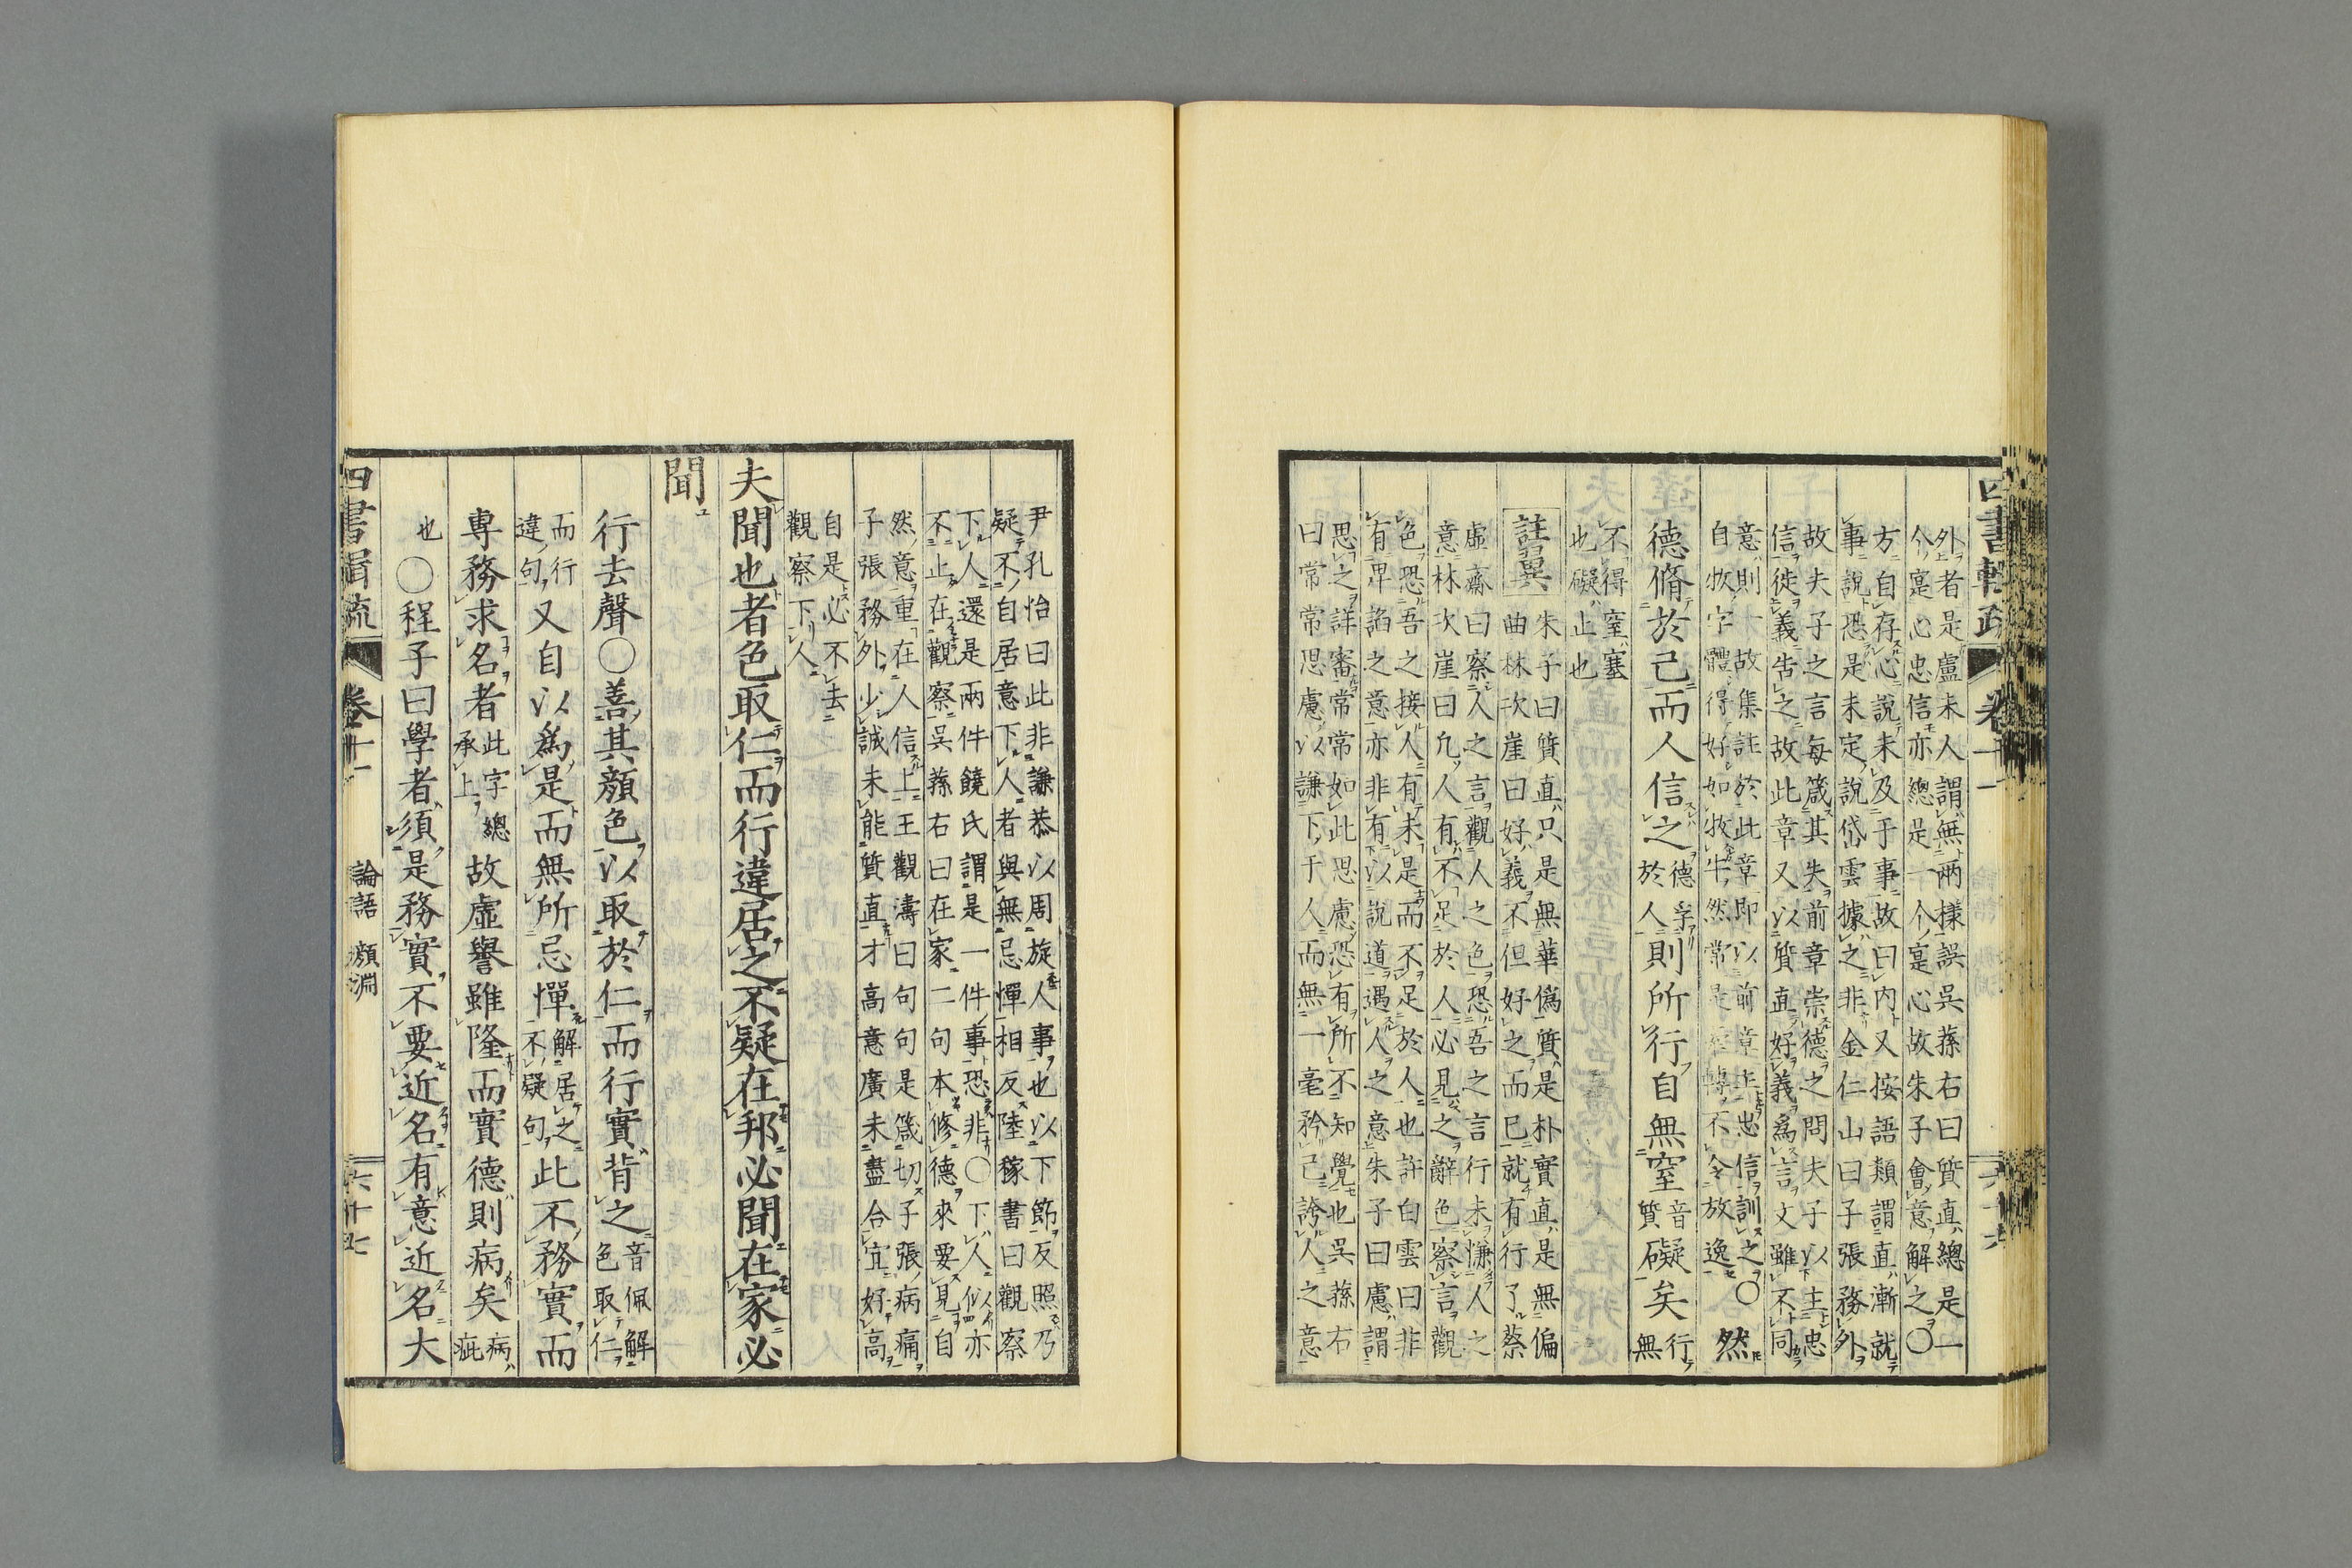 外者是盧未人謂無兩樣誤吳蓀右曰質直總是一
个寔心忠信亦總是一个寔心故朱子會意解之〇
方自存心說未及于事故曰內又按語類謂直漸就
事說恐是未定說岱雲據之非金仁山曰子張務外
故夫子之言每箴其失前章崇德之問夫子以主忠
信徙義告之故此章又以質直好義為言文雖不同
意則一故集註於此章即以前章主忠信訓之〇然
自牧字體得好如牧牛然常是不令放逸
德脩於己而人信之
德孚
於人
則所行自無窒
音
質
礙矣
行
無
不得窒塞
也礙止也
註異
朱子曰質直只是無華僞質是朴實直是無偏
曲林次崖曰好義不但好之而已就有行了蔡
虛齋曰察人之言觀人之色恐吾之言行未慊人之
意林次崖曰凢人有不足於人必見之辭色察言觀
色恐吾之接人有未是而不足於人也許白雲曰非
有畀諂之意亦非有以說道遇人之意朱子曰慮謂
思之詳審常常如此思慮恐有所不知覺也吳蓀右
曰常常思慮以謙下于人而無一毫矜己誇人之意
尹孔怡曰此非謙恭以周旋人事也以下節反照乃
疑不自居意下人者與無忌憚相反陸稼書曰觀察
下人還是兩件饒氏謂是一件事恐非〇下人似亦
不止在觀察吳蓀右曰在家二句本修德來要見自
然意重在人信上王觀濤曰句句是箴切子張病痛
子張務外少誠未能質直才高意廣未盡合宜好高
自是必不去
觀察下人
夫聞也者色取仁而行違居之不疑在邦必聞在家必
聞
行去聲〇善其顔色以取於仁而行實背之
音佩解
色取仁
而行
違句
又自以為是而無所忌憚
解居之
不疑句
此不務實而
専務求名者
此字總
承上
故虛譽雖隆而實德則病矣
病
疵
也
〇程子曰學者須是務實不要近名有意近名大
四書輯疏
卷十一
論語 顔淵
六十七